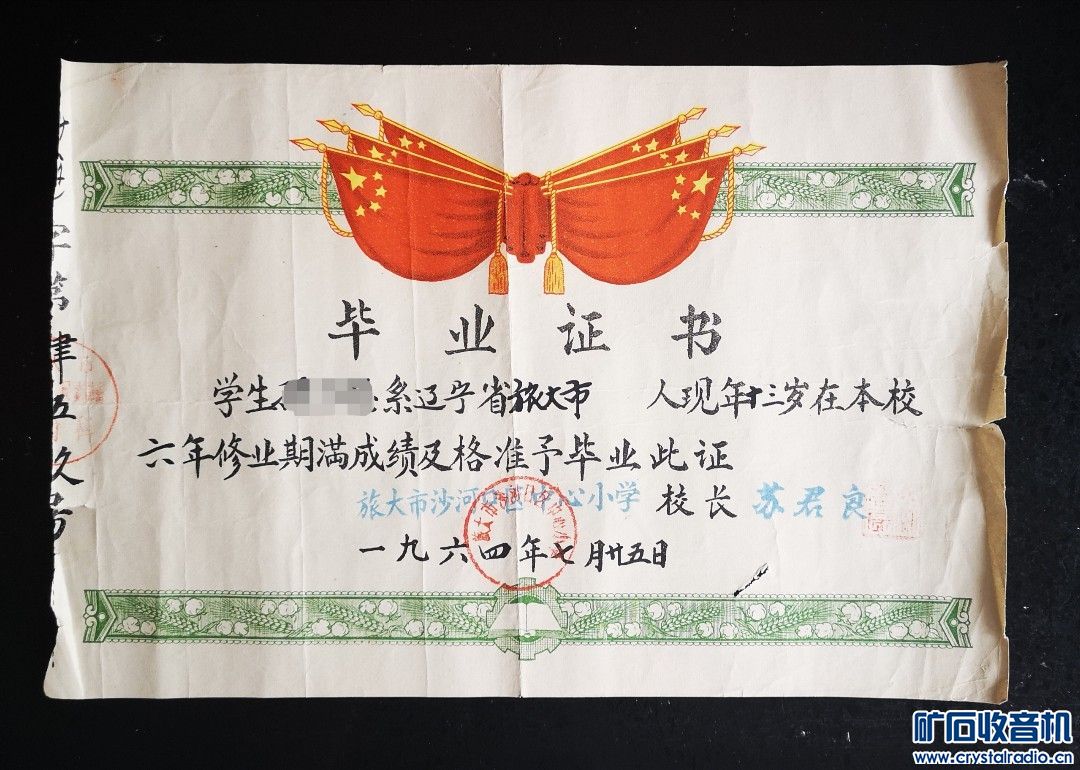 毕业证书
学生 系辽宁省旅大市 人现年十三岁在本校
六年修业期满成绩及格准予毕业此证
旅大市沙河口区中心小学 校长 苏君良
一九六四年七月廿五日
字第 五 号
矿石收音机
www.crystalradio.cn